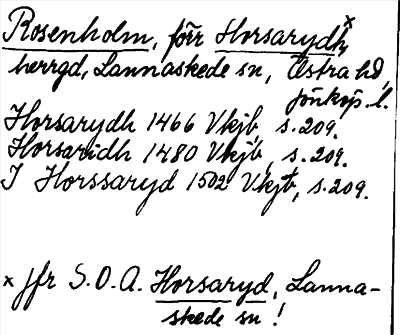 Rosenholm, förr Horsarydh x
herrgd, Lannaskede sn, Östra hd,
Jönköp. l.
Horsarydh 1466 Vkjb, s. 209.
Horsaridh 1480 Vkjb, s. 209.
I Horssaryd 1502 Vkjb, s. 209.
x jfr S.O.A. Horsaryd, Lanna-
skede sn!